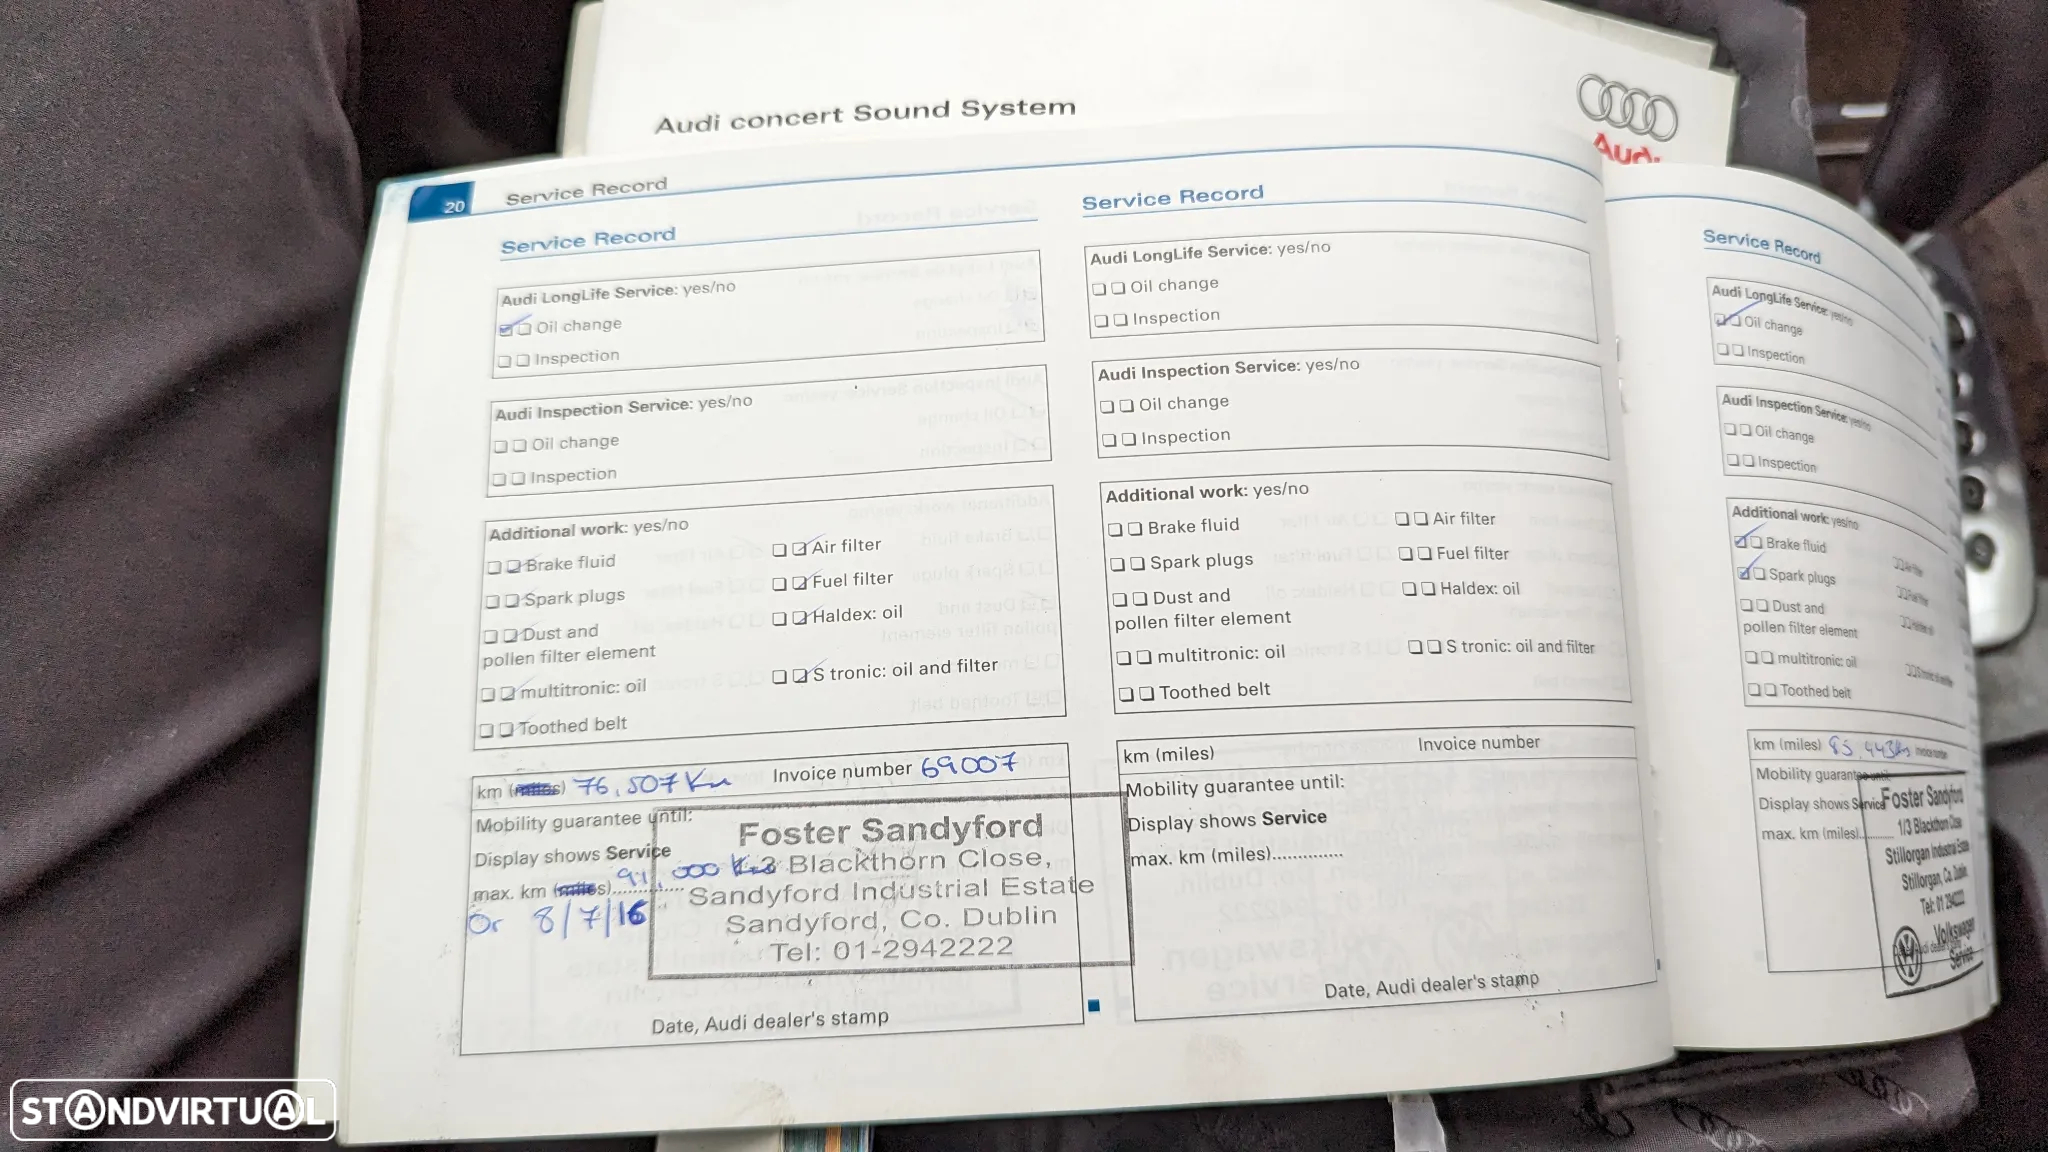 Audi concert Sound System
Audi
20
Service Record
Service Record
Audi LongLife Service: yes/no
Oil change
Inspection
Audi Inspection Service: yes/no
Oil change
Inspection
Additional work: yes/no
Brake fluid
Air filter
Spark plugs
Fuel filter
Dust and
pollen filter element
Haldex: oil
multitronic: oil
S tronic: oil and filter
Toothed belt
km (miles) 76,507 Km Invoice number 69007
Mobility guarantee until:
Display shows Service
max. km (miles).............. 91,000 Km
Or 8/7/16
Foster Sandyford
3 Blackthorn Close,
Sandyford Industrial Estate
Sandyford, Co. Dublin
Tel: 01-2942222
Date, Audi dealer's stamp
Service Record
Audi LongLife Service: yes/no
Oil change
Inspection
Audi Inspection Service: yes/no
Oil change
Inspection
Additional work: yes/no
Brake fluid
Air filter
Spark plugs
Fuel filter
Dust and
pollen filter element
Haldex: oil
multitronic: oil
S tronic: oil and filter
Toothed belt
km (miles) Invoice number
Mobility guarantee until:
Display shows Service
max. km (miles)..............
Date, Audi dealer's stamp
Service Record
Audi LongLife Service: yes/no
Oil change
Inspection
Audi Inspection Service: yes/no
Oil change
Inspection
Additional work: yes/no
Brake fluid
Spark plugs
Dust and
pollen filter element
multitronic: oil
Toothed belt
km (miles)
Mobility guarantee until:
Display shows Service
max. km (miles)
Foster Sandyford
1/3 Blackthorn Close
Stillorgan Industrial Estate
Stillorgan, Co. Dublin
Volkswagen
Service
STANDVIRTUAL